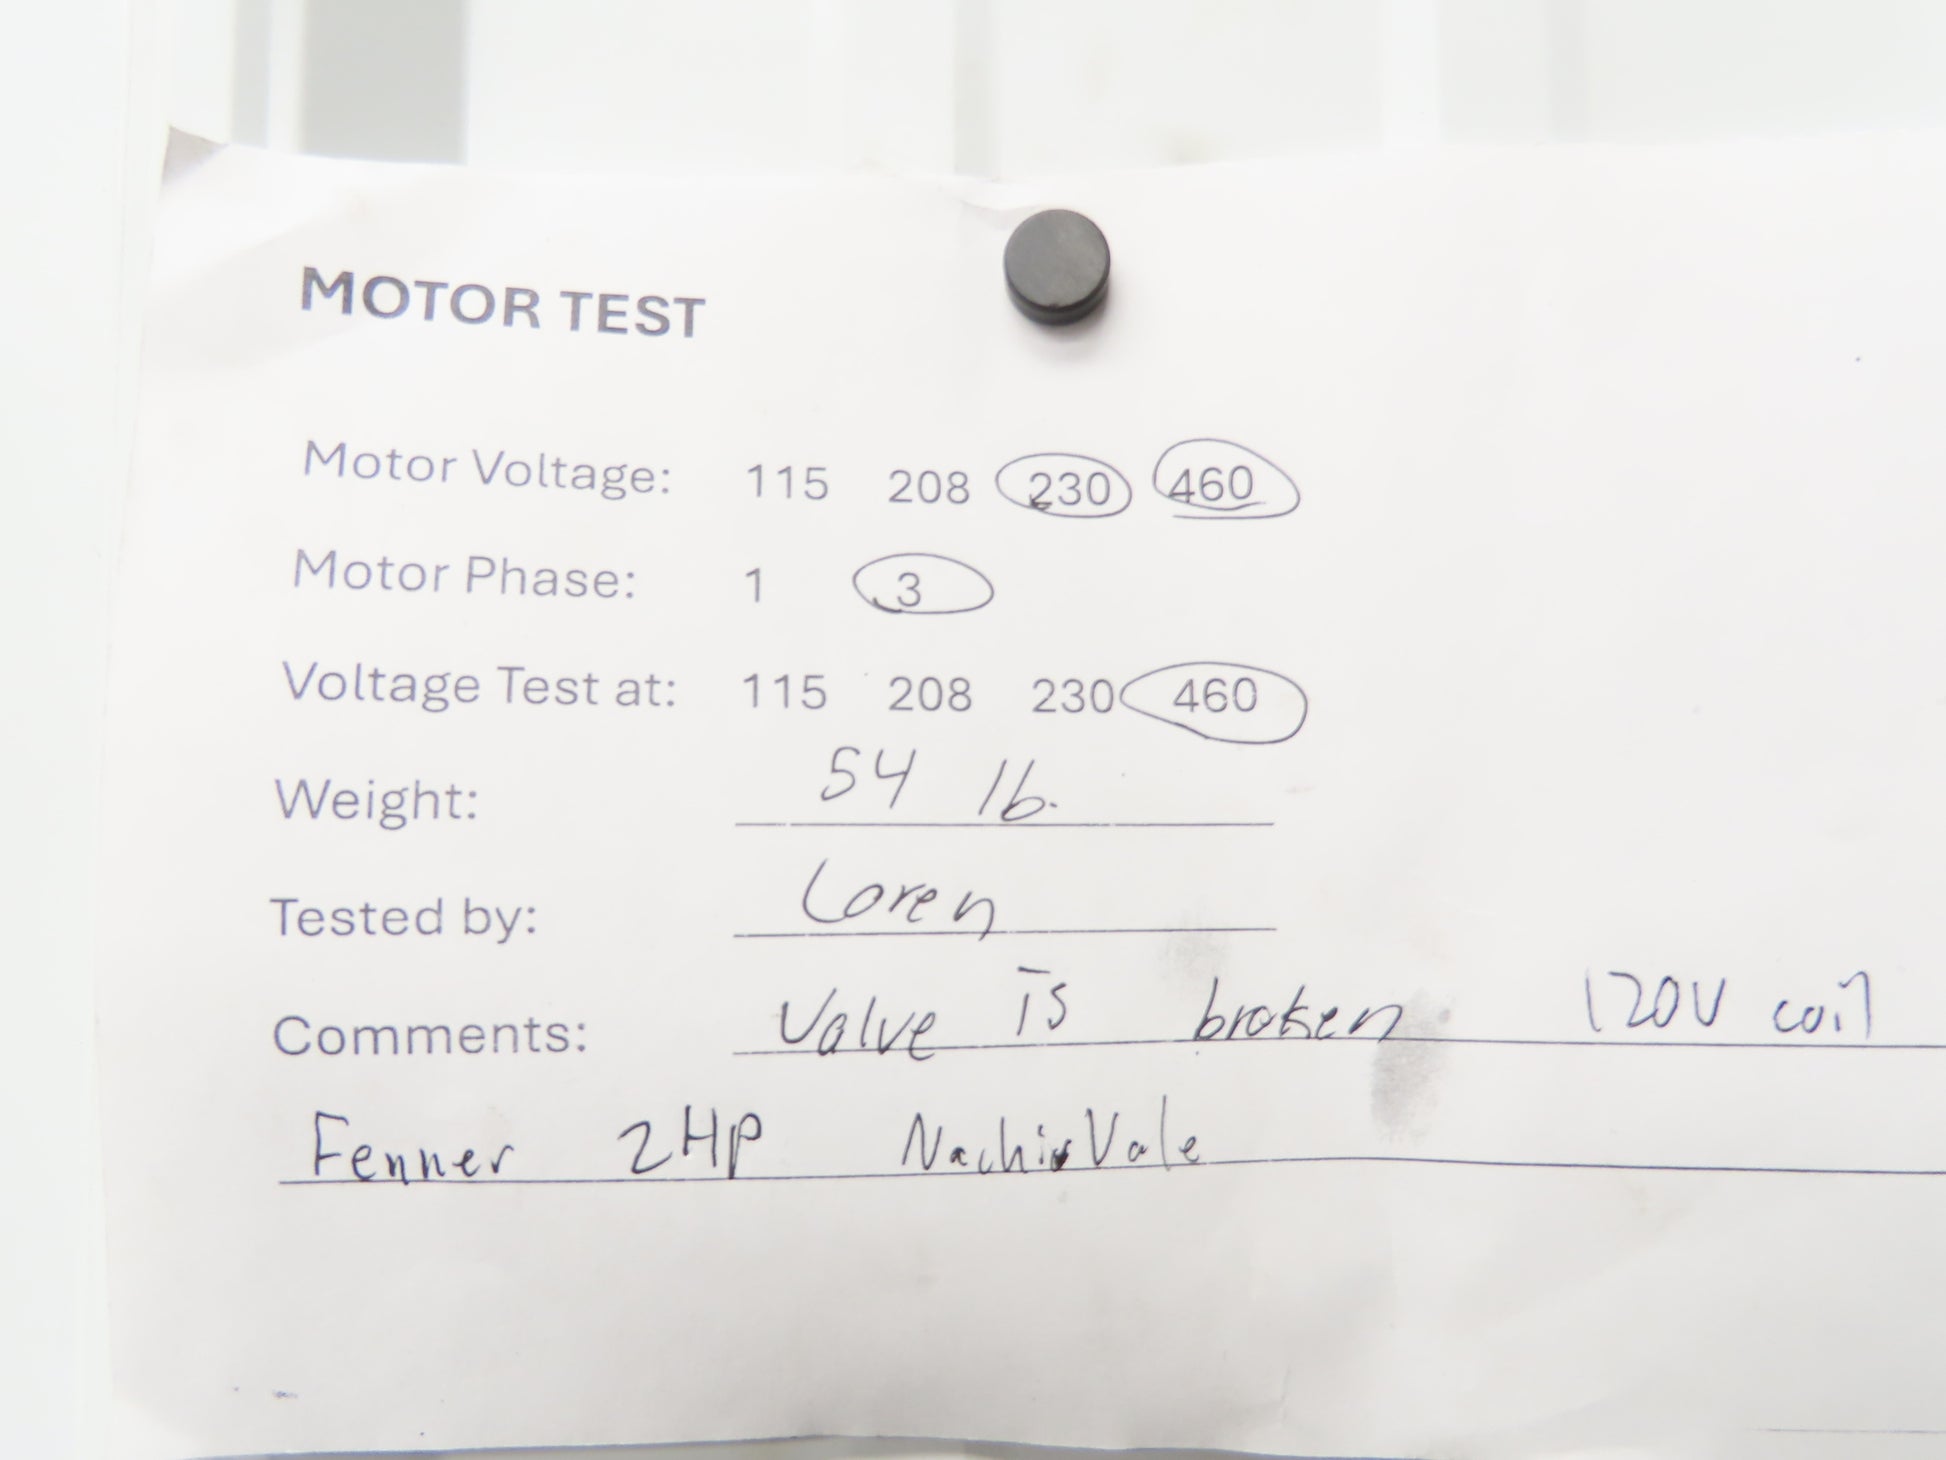 MOTOR TEST
Motor Voltage: 115 208 230 460
Motor Phase: 1 3
Voltage Test at: 115 208 230 460
Weight: 54 lb.
Tested by: Loren
Comments: Valve is broken 120V coil
Fenner 2HP Nachi Vale